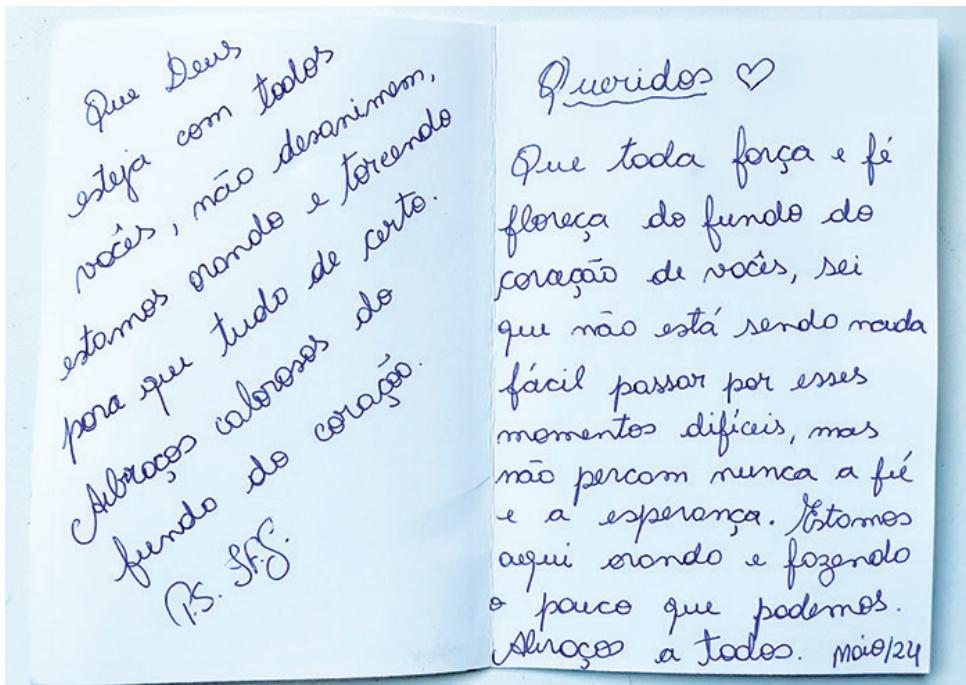 Que Deus
esteja com todos
vocês, não desanimem,
estamos orando e torcendo
para que tudo de certo.
Abraços calorosos do
fundo do coração.
Queridos ♡
Que toda força e fé
floreça do fundo do
coração de vocês, sei
que não está sendo nada
fácil passar por esses
momentos difíceis, mas
não percam nunca a fé
e a esperança. Estamos
aqui orando e fazendo
o pouco que podemos.
Abraços a todos. Maio/24